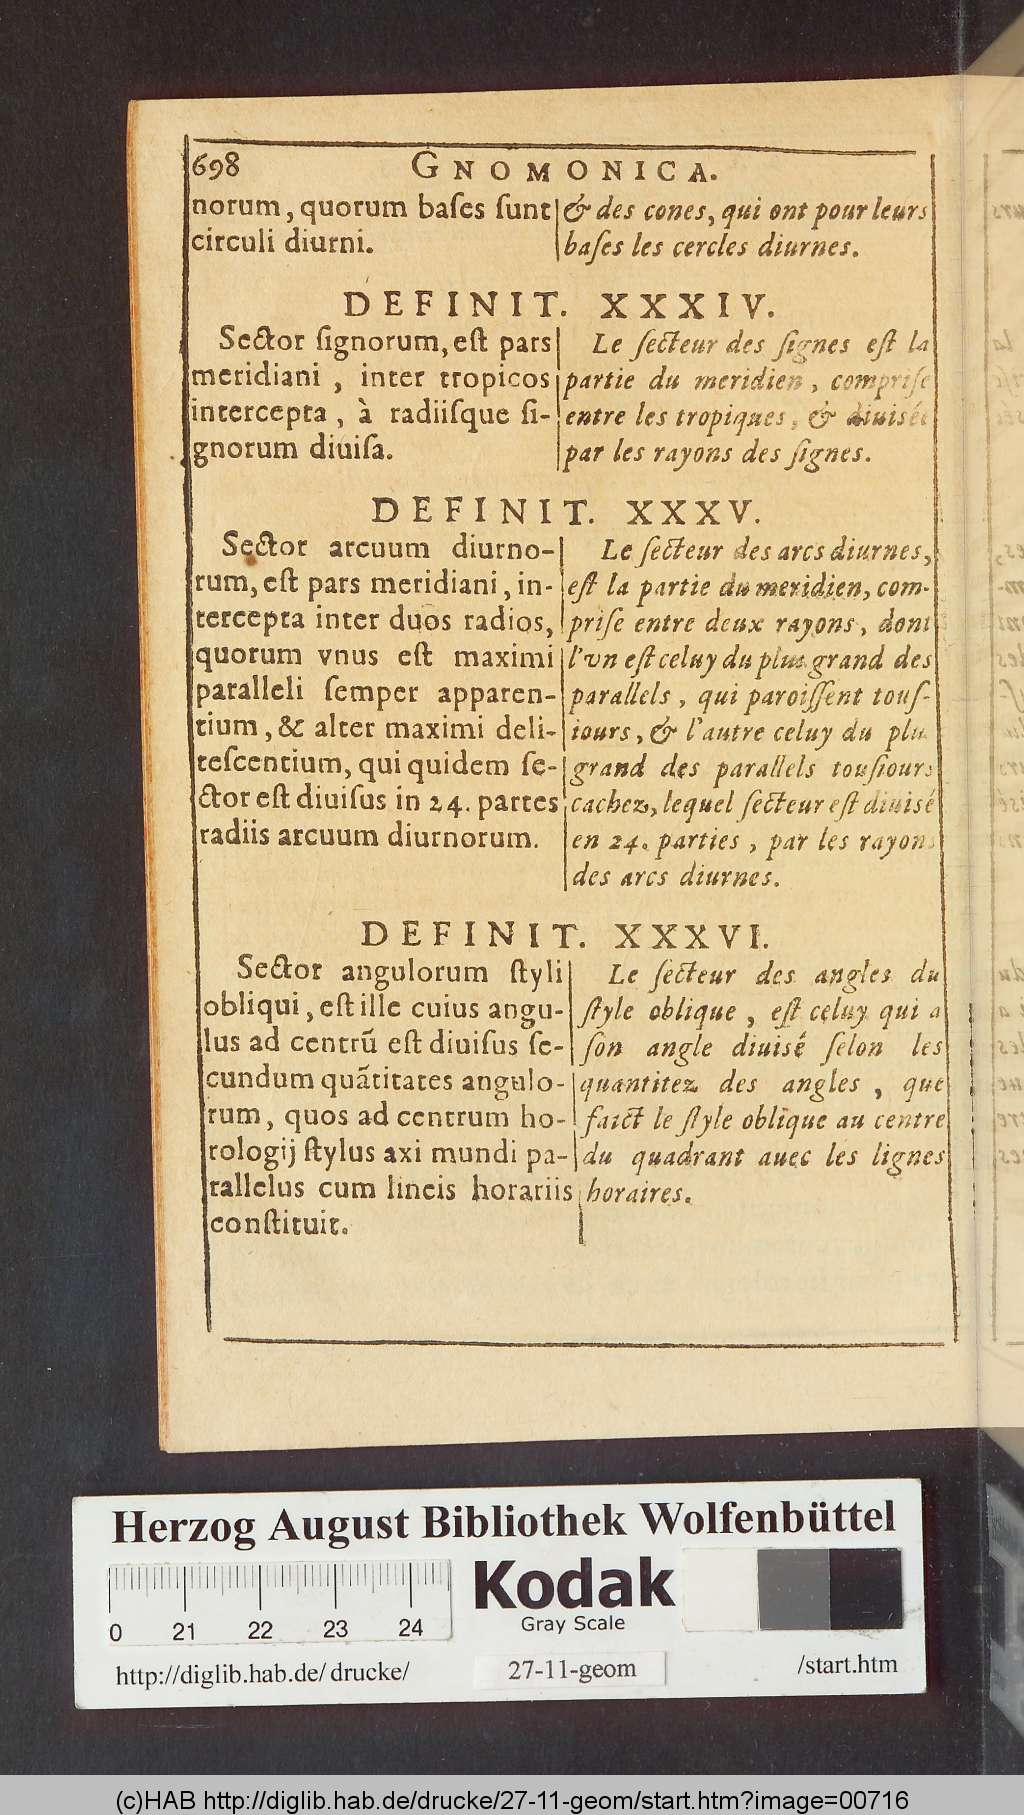 698
GNOMONICA.
norum, quorum baſes ſunt
circuli diurni.
& des cones, qui ont pour leurs
baſes les cercles diurnes.
DEFINIT. XXXIV.
Sector ſignorum, eſt pars
meridiani, inter tropicos
intercepta, à radiiſque ſi-
gnorum diuiſa.
Le ſecteur des ſignes eſt la
partie du meridien, compriſe
entre les tropiques, & diuisée
par les rayons des ſignes.
DEFINIT. XXXV.
Sector arcuum diurno-
rum, eſt pars meridiani, in-
tercepta inter duos radios,
quorum vnus eſt maximi
paralleli ſemper apparen-
tium, & alter maximi deli-
teſcentium, qui quidem ſe-
ctor eſt diuiſus in 24. partes
radiis arcuum diurnorum.
Le ſecteur des arcs diurnes,
eſt la partie du meridien, com-
priſe entre deux rayons, dont
l'vn eſt celuy du plus grand des
parallels, qui paroiſſent touſ-
iours, & l'autre celuy du plus
grand des parallels touſiours
cachez, lequel ſecteur eſt diuisé
en 24. parties, par les rayons
des arcs diurnes.
DEFINIT. XXXVI.
Sector angulorum ſtyli
obliqui, eſt ille cuius angu-
lus ad centrū eſt diuiſus ſe-
cundum quātitates angulo-
rum, quos ad centrum ho-
rologij ſtylus axi mundi pa-
rallelus cum lineis horariis
conſtituit.
Le ſecteur des angles du
ſtyle oblique, eſt celuy qui a
ſon angle diuisé ſelon les
quantitez des angles, que
faict le ſtyle oblique au centre
du quadrant auec les lignes
horaires.
Herzog August Bibliothek Wolfenbüttel
0 21 22 23 24
Kodak
Gray Scale
http://diglib.hab.de/drucke/
27-11-geom
/start.htm
(c)HAB http://diglib.hab.de/drucke/27-11-geom/start.htm?image=00716